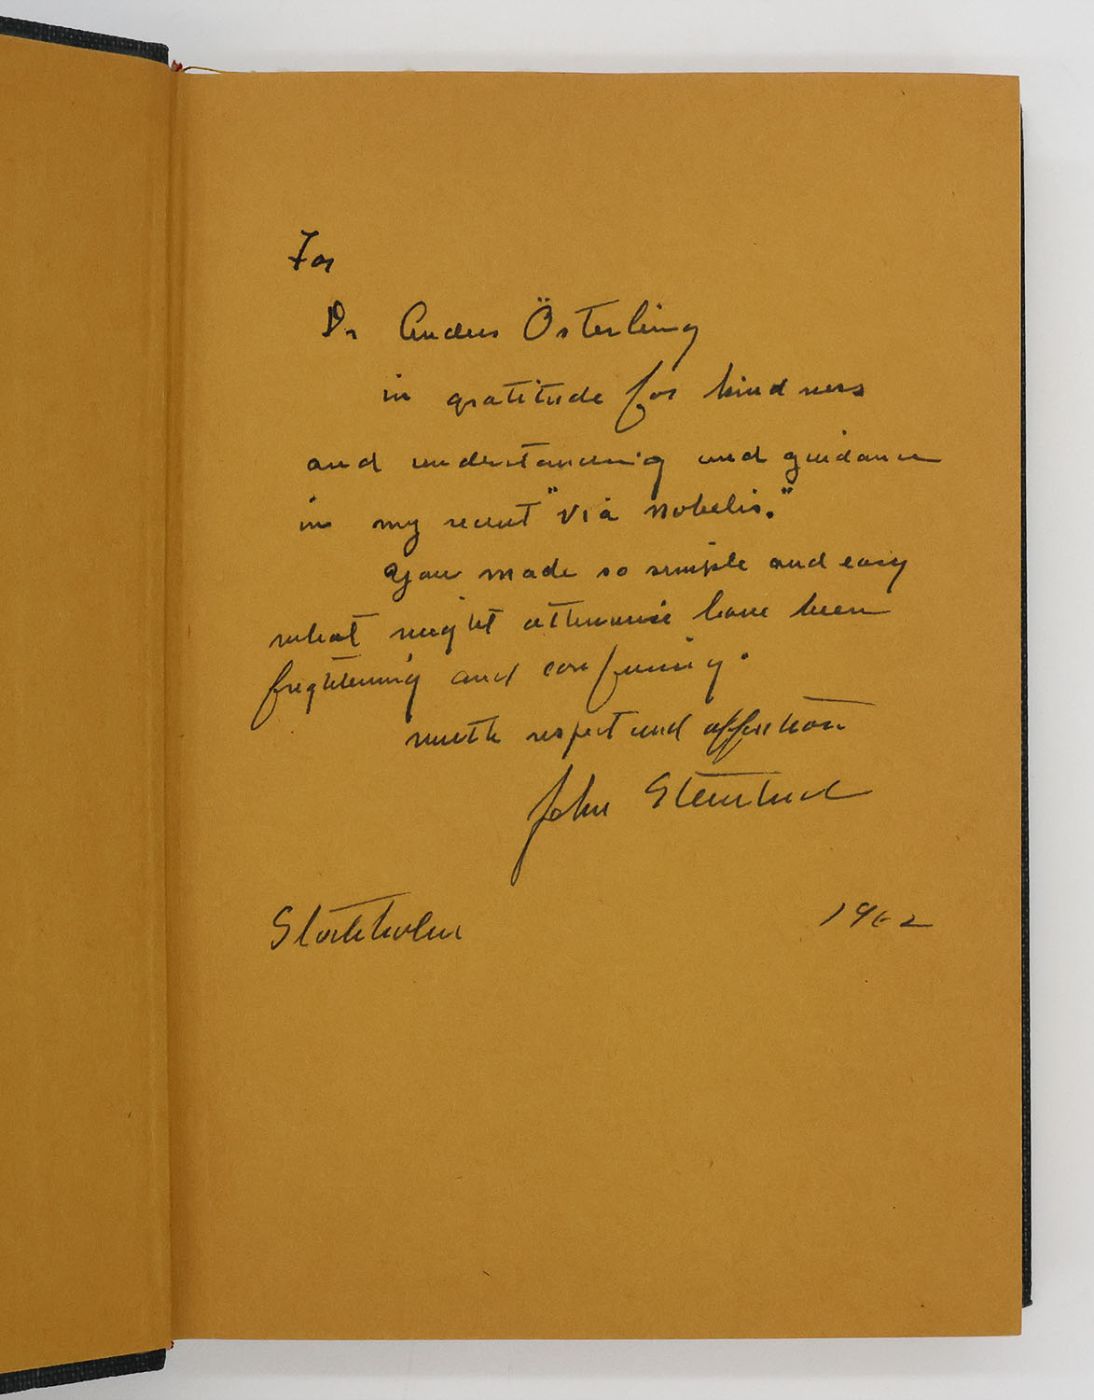 For
Dr Anders Österling
in gratitude for kindness
and understanding and guidance
in my recent "via nobelis."
You made so simple and easy
what might otherwise have been
frightening and confusing.
with respect and affection
John Steinbeck
Stockholm 1962